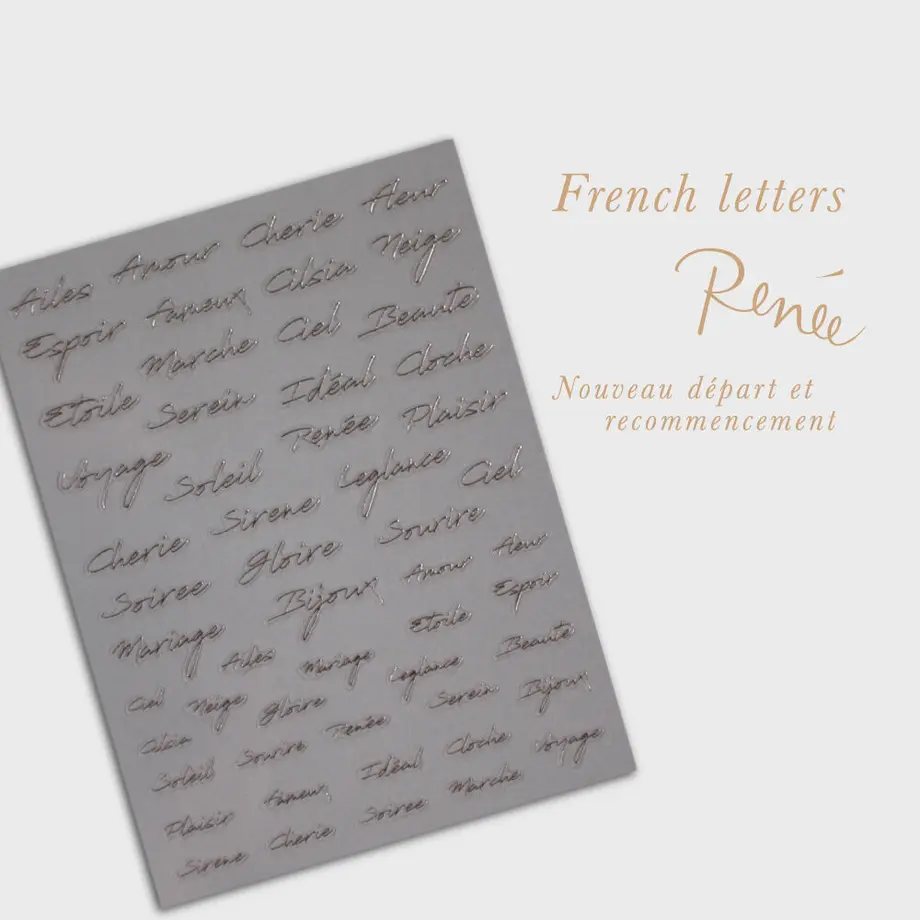 French letters
Renée
Nouveau départ et
recommencement
Ailes Amour Cherie fleur
Espoir fameux Cilsia Neige
Marche Ciel Beaute
Etoile Serein Idéal Cloche
Voyage Soleil Renée Plaisir
Cherie Sirene Leglance Ciel
Soiree Gloire Sourire
Mariage Bijoux Amour fleur
Ciel Ailes Mariage Etoile Espoir
Cilsia Neige Gloire Leglance Beaute
Soleil Sourire Renée Serein Bijoux
Plaisir fameux Idéal Cloche Voyage
Sirene Cherie Soiree Marche